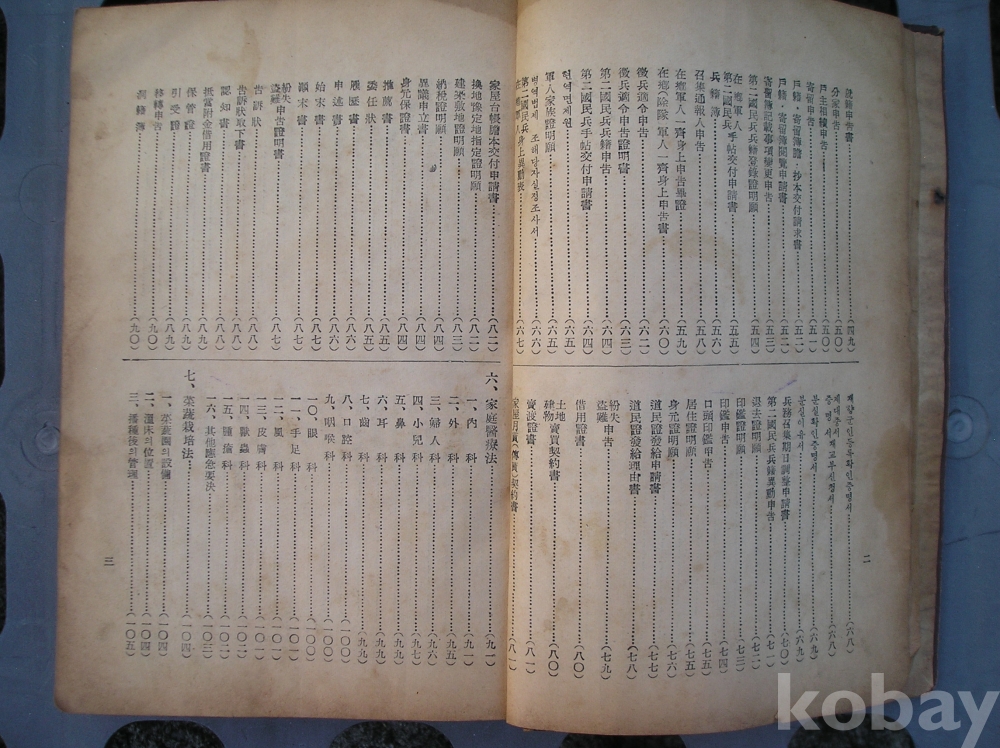 就籍申告書…(四九)
分家申告…(五〇)
戶主相續申告…(五〇)
寄留申告…(五一)
戶籍·寄留簿謄·抄本交付請求書…(五二)
戶籍·寄留簿閱覽申請書…(五二)
寄留簿記載事項變更申告…(五三)
第二國民兵兵籍登錄證明願…(五四)
在鄕軍人手帖交付申請書…(五五)
第二國民兵
兵籍簿…(五六)
召集通報人申告…(五八)
在鄕軍人一齊身上申告畢證…(五九)
在鄕(除隊)軍人一齊身上申告書…(六〇)
徵兵適令申告…(六二)
徵兵適令申告證明書…(六三)
第二國民兵兵籍申告…(六四)
第二國民兵手帖交付申請書…(六四)
현역면제원…(六五)
軍人家族證明願…(六五)
병역법제 조해당자실정조사서…(六六)
第二國民兵身上異動表…(六七)
在鄕軍人
제향군인등록확인증명서…(六八)
제대증명서재교부신청서…(六八)
분실확인증명서…(六九)
분실이유서…(六九)
兵務召集期日調整申請書…(七〇)
第二國民兵兵籍異動申告…(七一)
退去證明願…(七二)
印鑑證明願…(七三)
印鑑申告…(七四)
口頭印鑑申告…(七五)
居住證明願…(七五)
身元證明願…(七六)
道民證發給申請書…(七七)
道民證發給理由書…(七七)
紛失
盜難申告…(七九)
借用證書…(八〇)
土地
建物賣買契約書…(八〇)
賣渡證書…(八一)
家屋月賣(傳貰)契約書…(八一)
二
家屋台帳謄本交付申請書…(八二)
換地豫定地指定證明願…(八二)
建築敷地證明願…(八三)
納稅證明願…(八四)
異議申立書…(八四)
身元保證書…(八四)
推薦書…(八五)
委任狀…(八五)
履歷書…(八六)
申述書…(八六)
始末書…(八七)
顚末書…(八七)
紛失申告證明書…(八七)
盜難
告訴狀…(八八)
告訴狀取下書…(八八)
認知書…(八八)
抵當附金借用證書…(八九)
保管證…(八九)
引受證…(八九)
移轉申告…(九〇)
六、家庭醫療法…(九一)
一、內科…(九一)
二、外科…(九五)
三、婦人科…(九六)
四、小兒科…(九七)
五、鼻科…(九九)
六、耳科…(九九)
七、齒科…(九九)
八、口腔科…(一〇〇)
九、咽喉科…(一〇〇)
一〇、眼科…(一〇〇)
一一、手足科…(一〇一)
一三、皮膚科…(一〇一)
一四、獸蟲科…(一〇二)
一五、腫瘡科…(一〇二)
一六、其他應急要法…(一〇三)
七、菜蔬栽培法…(一〇四)
一、菜蔬園의設備…(一〇四)
二、溫床의位置…(一〇四)
三、播種後의管理…(一〇五)
三
kobay